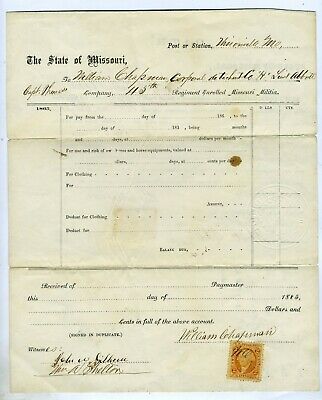 Post or Station, Mo,
The State of Missouri,
To William Chapman Corporal detachment Co "H" Lieut Abbott
Capt Company, 115th Regiment Enrolled Missouri Militia.
1865, DOLLS CTS.
For pay from the day of 186 , to the
day of 181 , being months
and days, at
dollars per month
For use and risk of own horse and horse equipments, valued at
dollars, days, at cents per day
For Clothing
For
Amount,
Deduct for Clothing
Deduct for
Balance due,
Received of Paymaster
this day of 1865,
Dollars and
Cents in full of the above account.
(SIGNED IN DUPLICATE.) William Chapman
Witness
John
Shelton